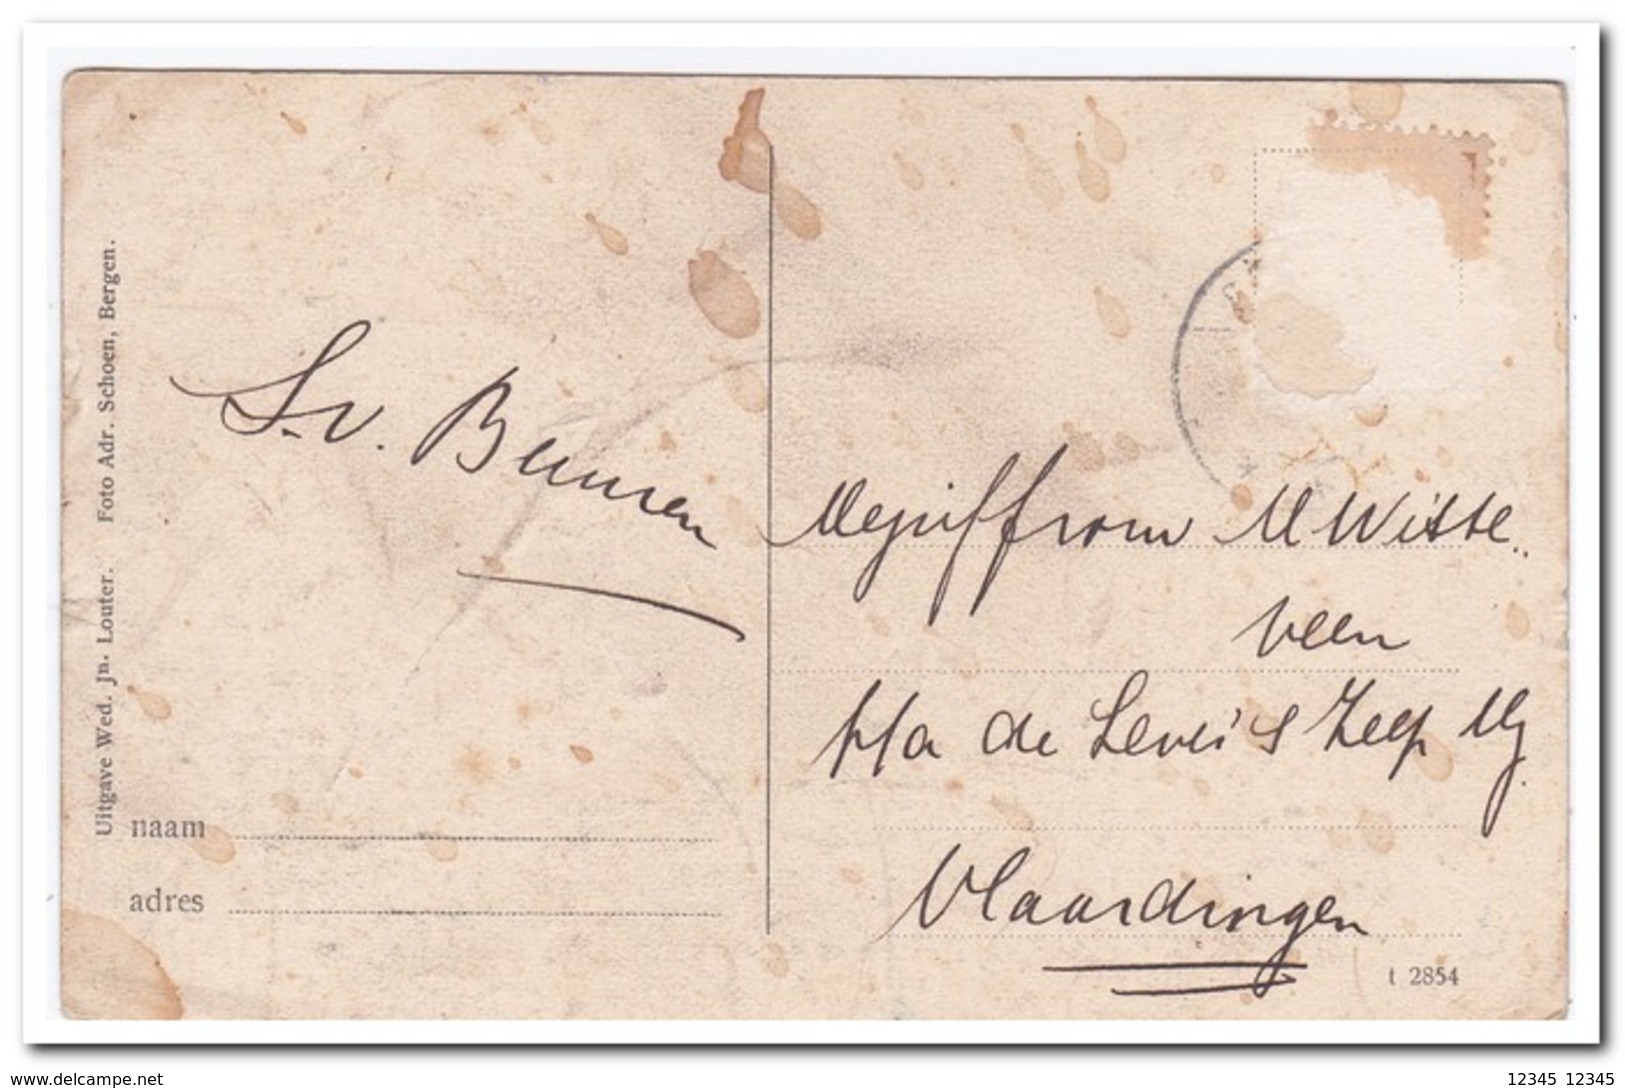 Uitgave Wed. Jn. Louter. Foto Adr. Schoen, Bergen.
S. v. Beuusen
Mejuffrouw M Witte..
veen
p/a de Lever's Zeep Mij
Vlaardingen
naam
adres
t 2854
www.delcampe.net
12345 12345